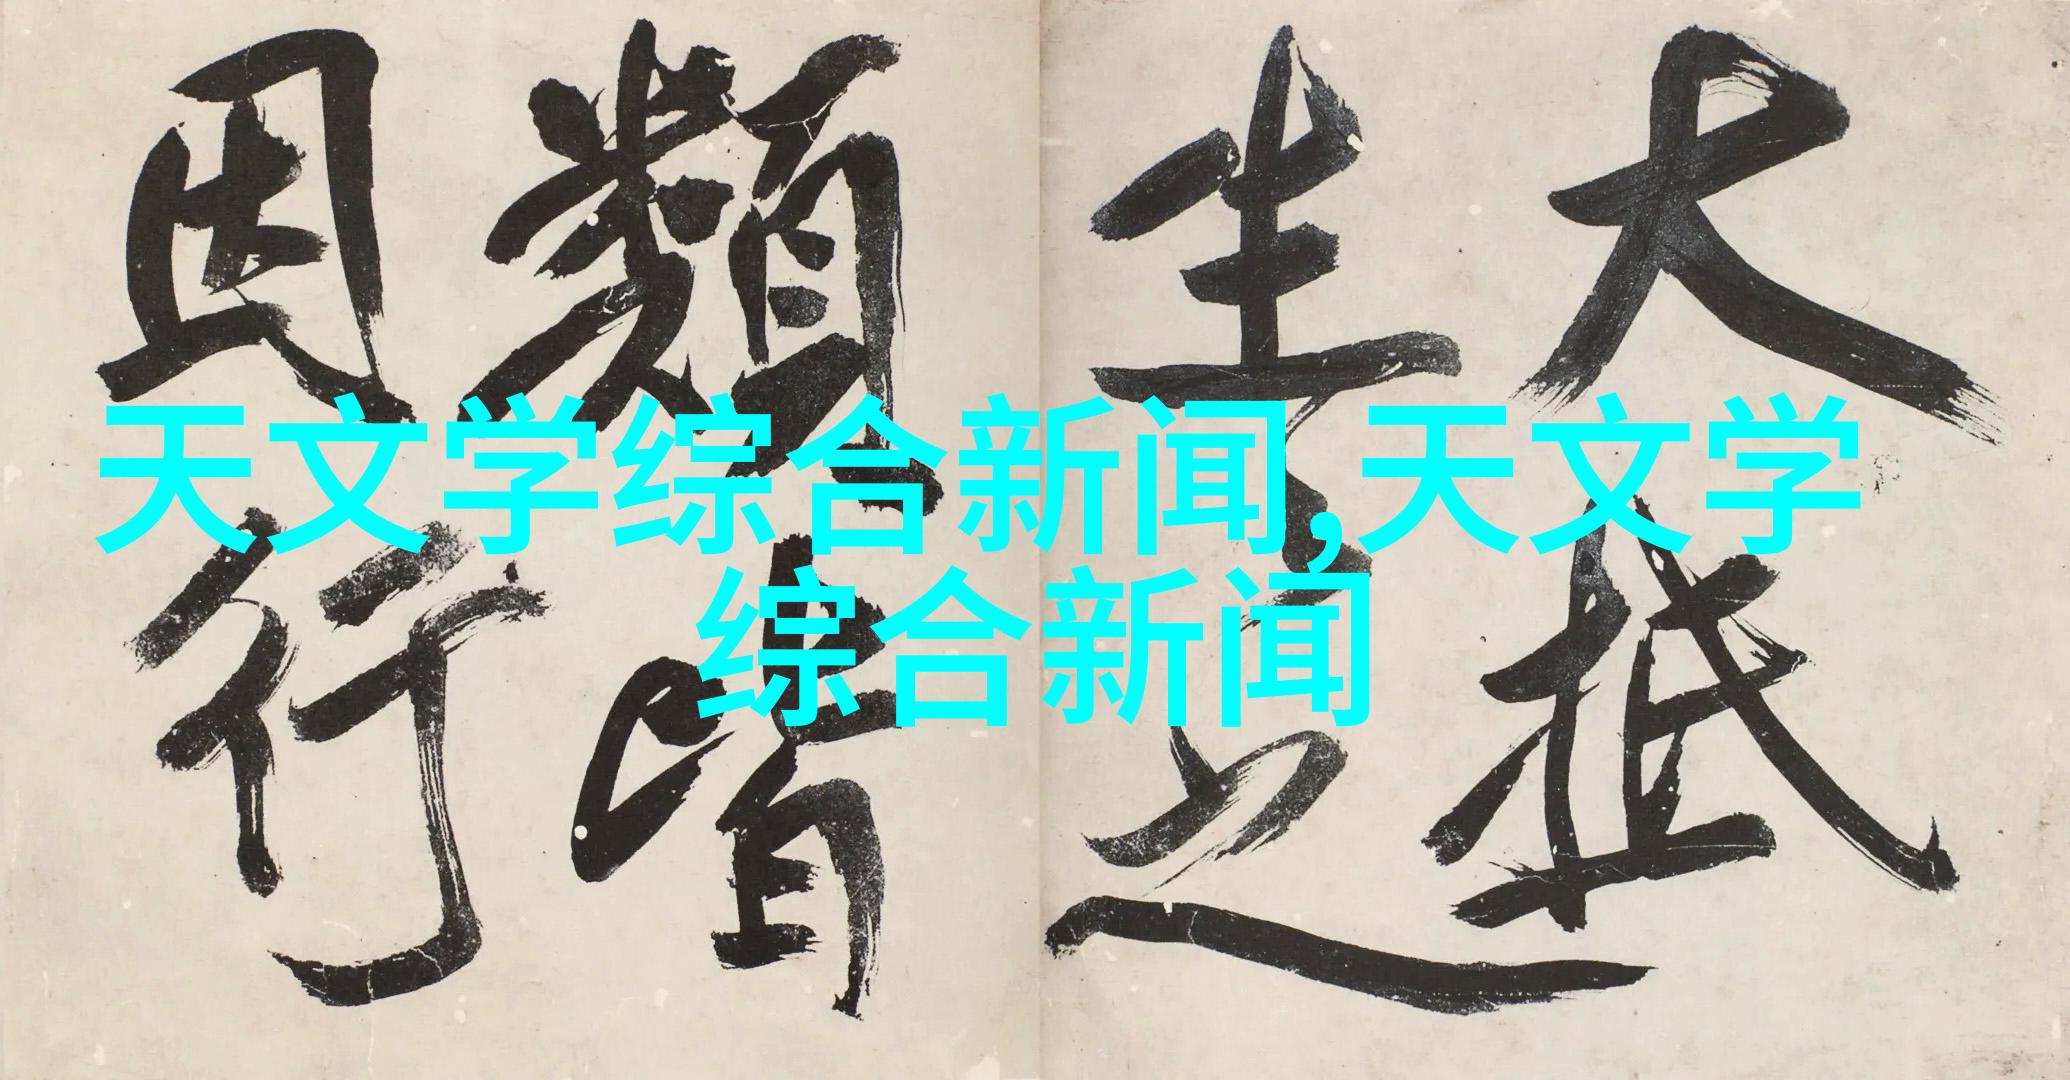 大抵
生之
類皆
因行
天文学综合新闻,天文学
综合新闻